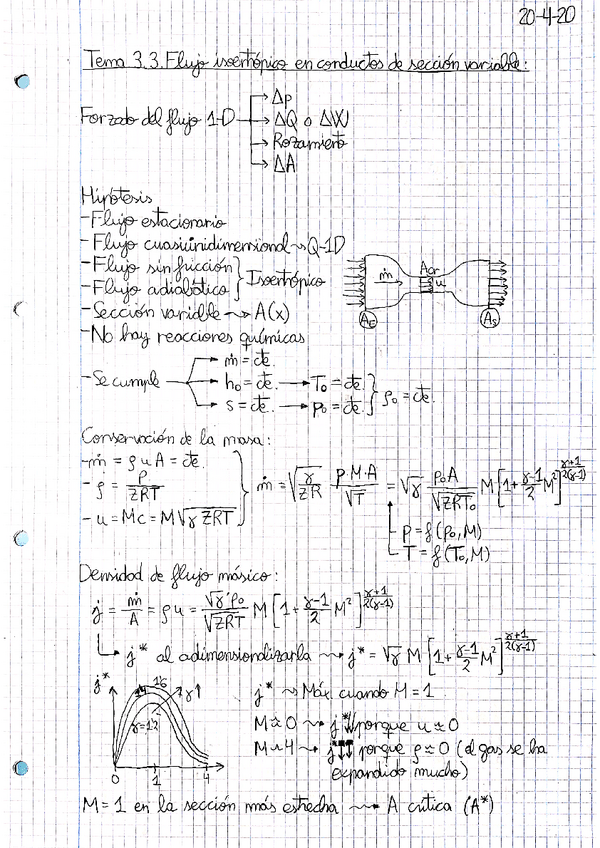 20-4-20
Tema 3.3. Flujo isoentrópico en conductos de sección variable:
Forzado del flujo 1-D → Δp
→ ΔQ o ΔW
→ Rozamiento
→ ΔA
Hipótesis
-Flujo estacionario
-Flujo cuasiunidimensional ⇝ Q-1D
-Flujo sin fricción
-Flujo adiabático } Isoentrópico
-Sección variable ⇝ A(x)
-No hay reacciones químicas
ṁ Acr u
AE AS
-Se cumple → ṁ = cte.
→ h₀ = cte. → T₀ = cte.
→ s = cte. → p₀ = cte. } ρ₀ = cte.
Conservación de la masa:
-ṁ = ρ u A = cte.
-ρ = p/ZRT
-u = Mc = M√(γZRT)
ṁ = √(γ/ZR) p·M·A/√T = √γ p₀A/√(ZRT₀) M[1+(γ-1)/2 M²]^((γ+1)/(2(γ-1)))
p = f(p₀,M)
T = f(T₀,M)
Densidad de flujo másico:
j = ṁ/A = ρu = √γ p₀/√(ZRT) M[1+(γ-1)/2 M²]^((γ+1)/(2(γ-1)))
→ j* al adimensionalizarla ⇝ j* = √γ M[1+(γ-1)/2 M²]^((γ+1)/(2(γ-1)))
j* 1'4 1'6 γ↑
γ=1'2
0 1 4
j* ⇝ Máx. cuando M=1
M≈0 ⇝ j*↓↓ porque u≈0
M~4 ⇝ j*↓↓ porque ρ≈0 (el gas se ha
expandido mucho)
M=1 en la sección más estrecha ⇝ A crítica (A*)